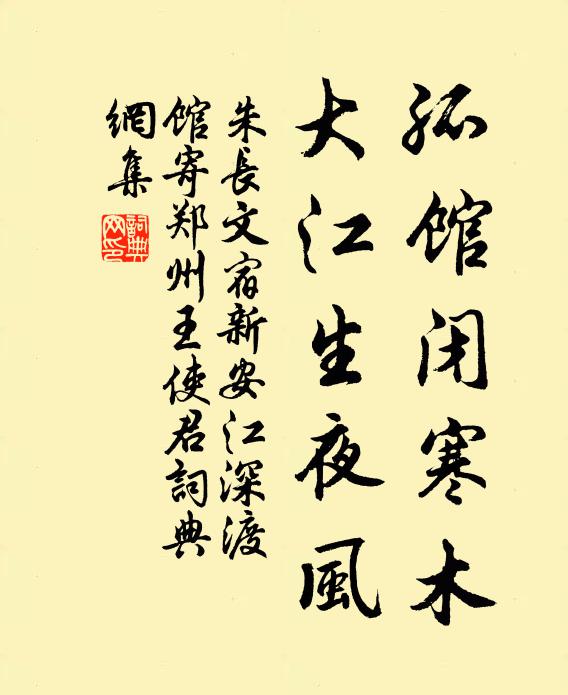 孤馆闭寒木
大江生夜風
朱長文宿新安江深渡
馆寄郑州王使君詞典
網集
詞典网印